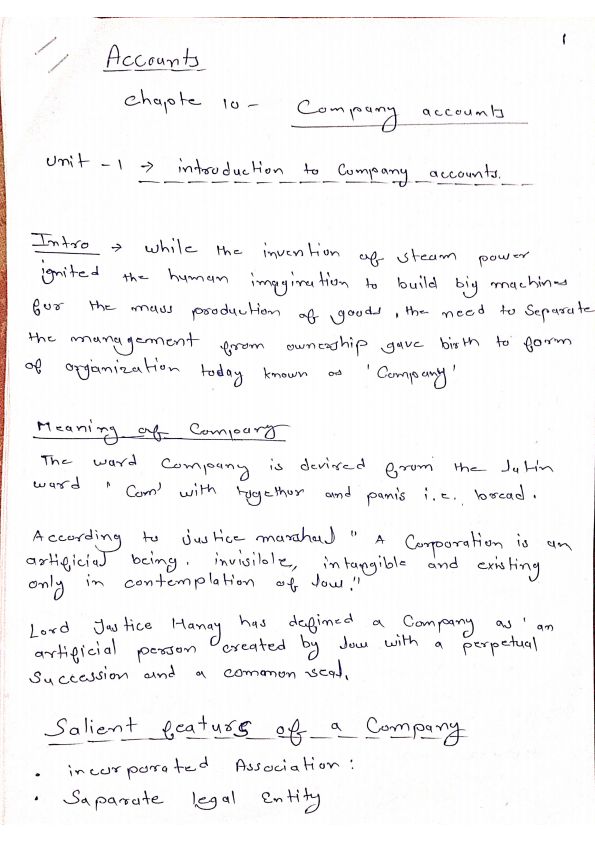 1
Accounts
Chapte 10 - Company accounts
Unit - 1 → introduction to Company accounts.
Intro → while the invention of steam power
ignited the human imagination to build big machines
for the mass production of goods, the need to Separate
the management from ownership gave birth to form
of organization today known as 'Company'
Meaning of Company
The ward Company is devired from the Latin
ward "Com" with together and panis i.e. bread.
According to Justice marshal " A Corporation is an
artificial being. invisible, intangible and existing
only in contemplation of law."
Lord Justice Hanay has defined a Company as 'an
artificial person created by law with a perpetual
Succession and a common seal.
Salient features of a Company
• incorporated Association:
• Saparate legal Entity